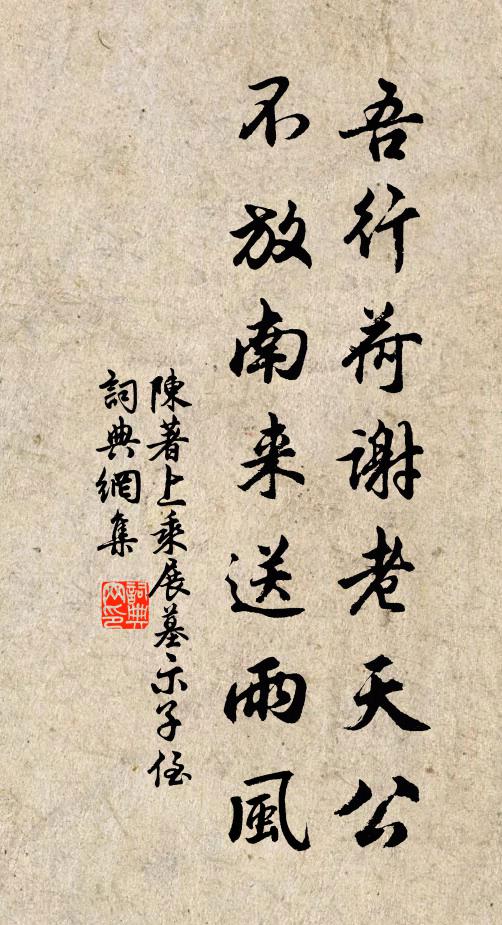 吾行荷谢老天公
不放南来送雨風
陳著上乘展墓示子侄
詞典網集
詞典
网印